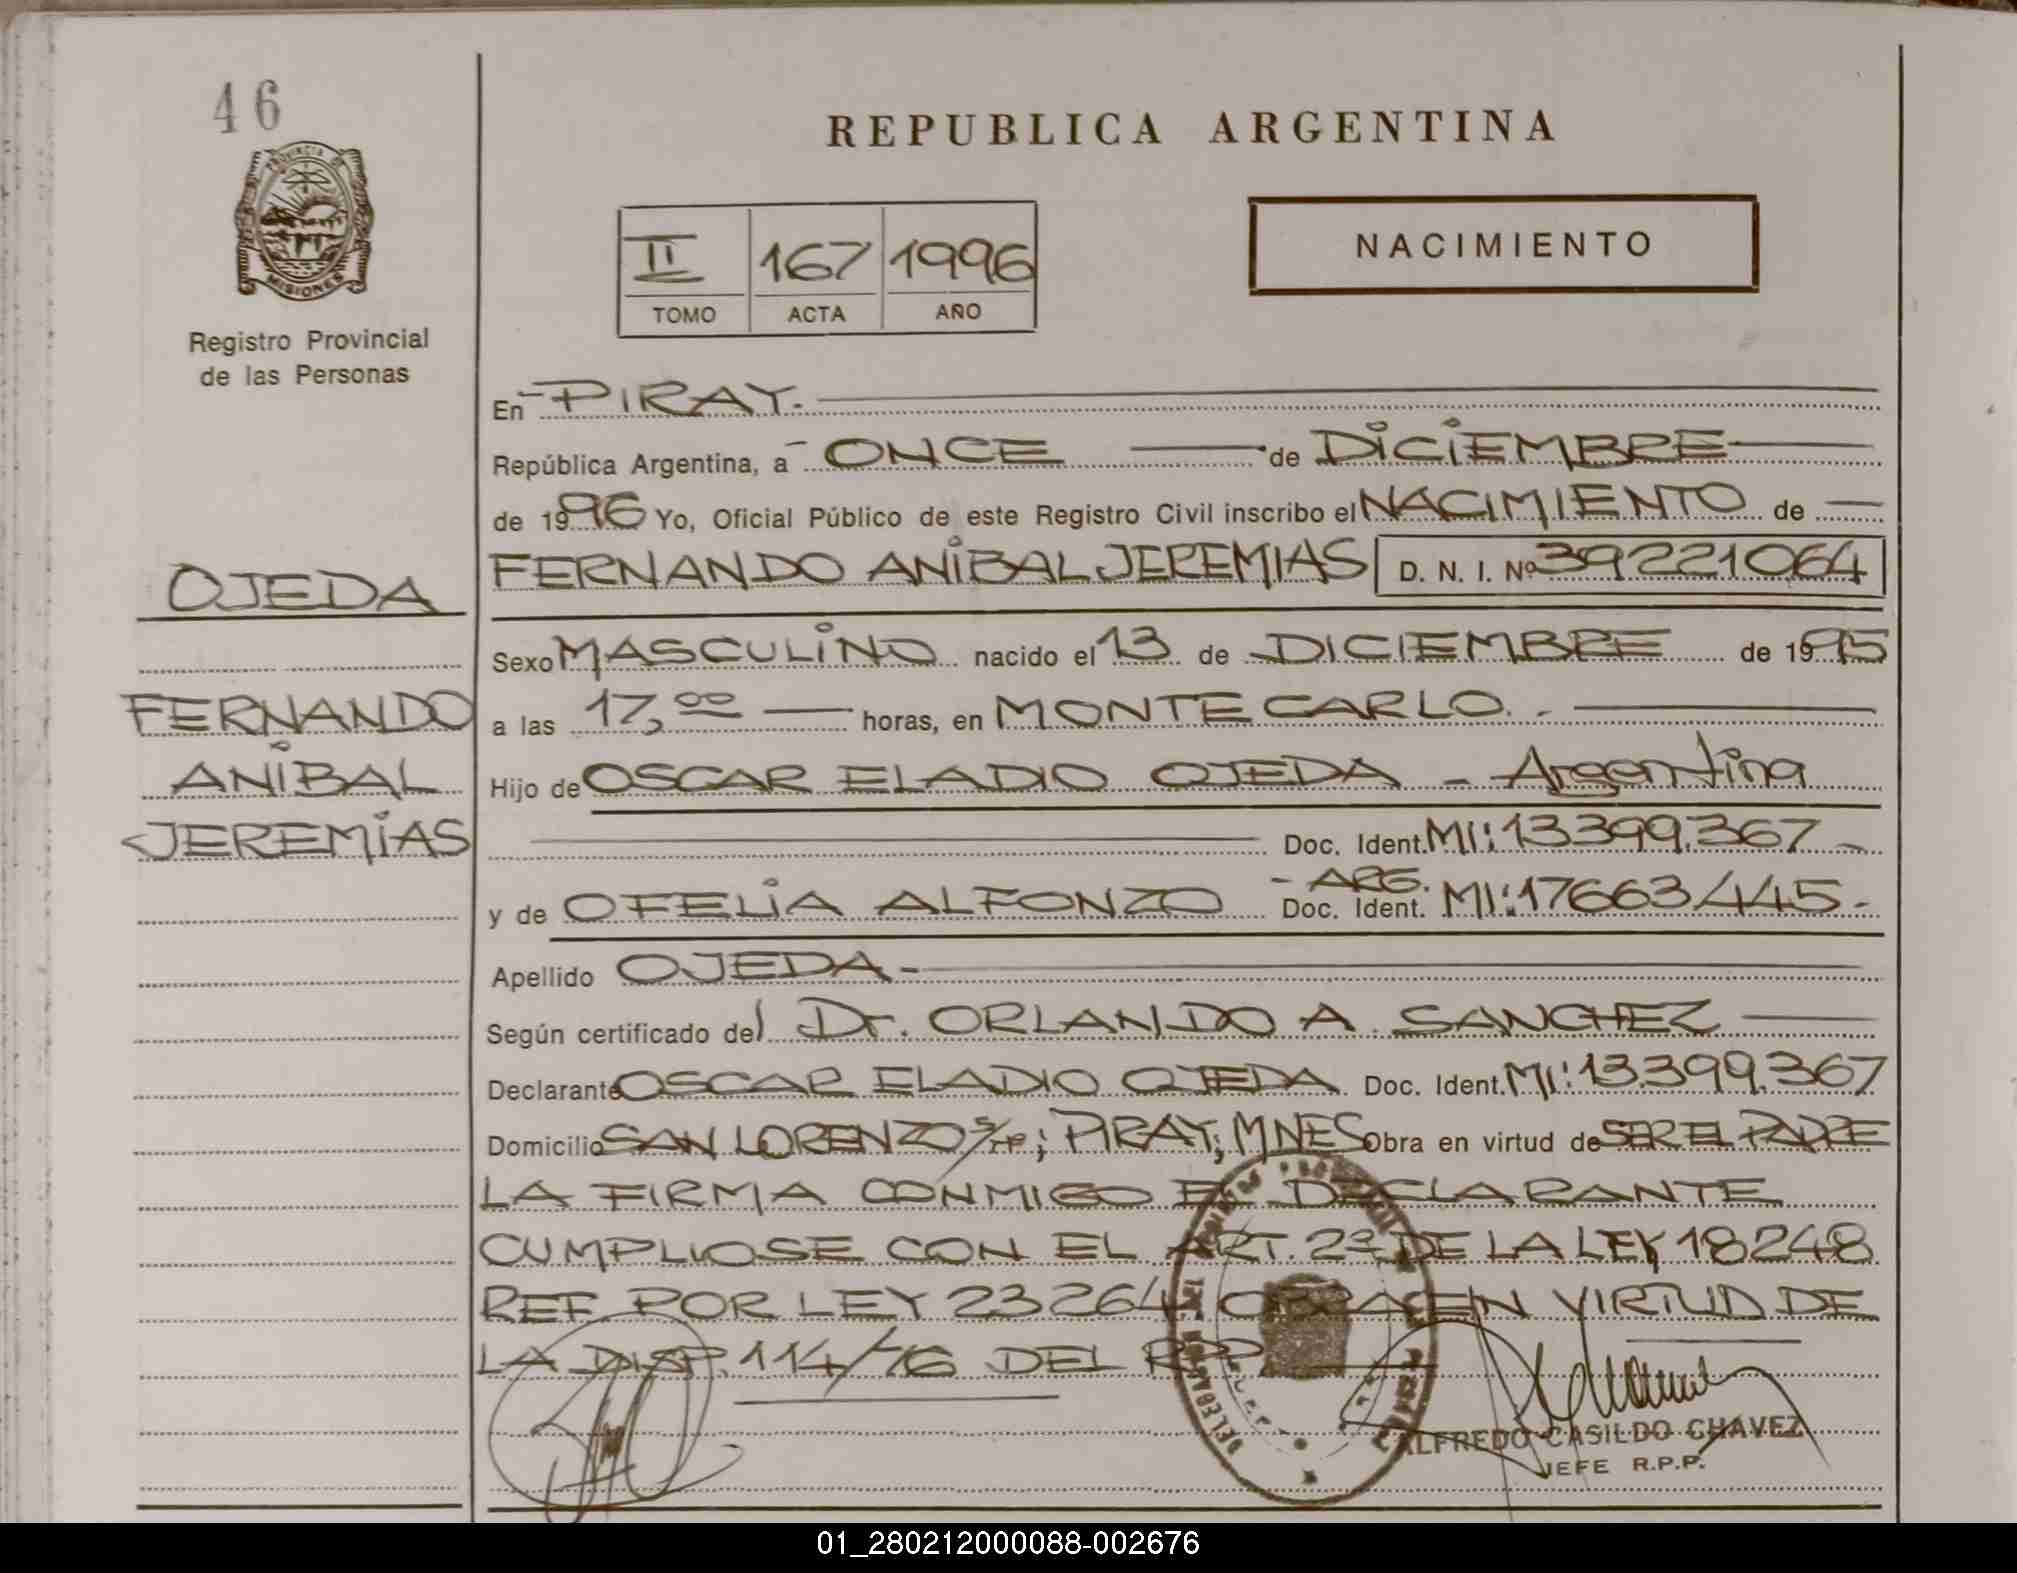 46
REPUBLICA ARGENTINA
PROVINCIA DE
MISIONES
Registro Provincial
de las Personas
II 167 1996
TOMO ACTA AÑO
NACIMIENTO
En PIRAY.
República Argentina, a ONCE de DICIEMBRE
de 1996 Yo, Oficial Público de este Registro Civil inscribo el NACIMIENTO de
FERNANDO ANIBAL JEREMIAS D. N. I. Nº 39221064
OJEDA
FERNANDO
ANIBAL
JEREMIAS
Sexo MASCULINO nacido el 13 de DICIEMBRE de 1995
a las 17,00 horas, en MONTECARLO.
Hijo de OSCAR ELADIO OJEDA - Argentina
Doc. Ident. MI: 13399.367 -
y de OFELIA ALFONZO - ARG. Doc. Ident. MI: 17663445 -
Apellido OJEDA -
Según certificado del Dr. ORLANDO A. SANCHEZ
Declarante OSCAR ELADIO OJEDA Doc. Ident. MI: 13.399.367
Domicilio SAN LORENZO ; PIRAY; MNES Obra en virtud de SER EL PADRE
LA FIRMA CONMIGO EL DECLARANTE
CUMPLIOSE CON EL ART. 2º DE LA LEY 18248
REF POR LEY 23264 OBRA EN VIRTUD DE
LA DISP. 114/76 DEL RPP.
ALFREDO CASILDO CHAVEZ
JEFE R.P.P.
01_280212000088-002676